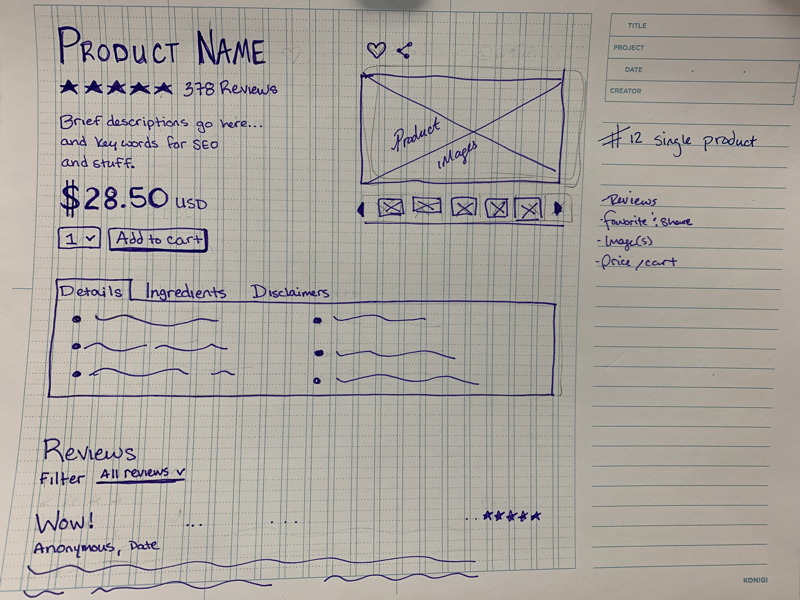 PRODUCT NAME
378 Reviews
Brief descriptions go here...
and key words for SEO
and stuff.
$28.50 USD
1 Add to cart
Product
images
Details Ingredients Disclaimers
Reviews
Filter All reviews
Wow! ... ... ..
Anonymous, Date
TITLE
PROJECT
DATE
CREATOR
#12 single product
-Reviews
-favorite & share
-Image(s)
-Price/cart
KONIGI